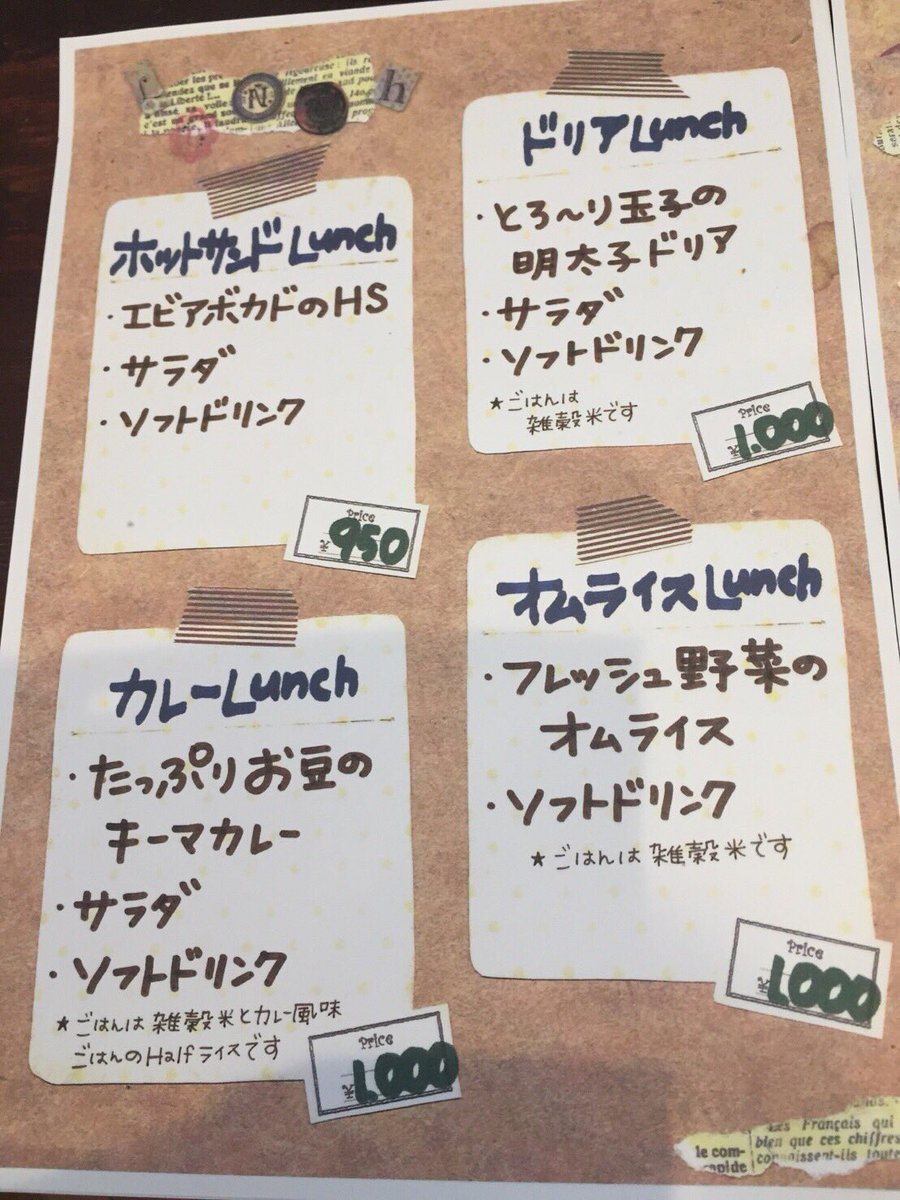 ホットサンドLunch
・エビアボカドのHS
・サラダ
・ソフトドリンク
Price
950
ドリアLunch
・とろ～り玉子の
明太子ドリア
・サラダ
・ソフトドリンク
★ごはんは
雑穀米です
Price
1.000
カレーLunch
・たっぷりお豆の
キーマカレー
・サラダ
・ソフトドリンク
★ごはんは雑穀米とカレー風味
ごはんのHalfライスです
Price
1.000
オムライスLunch
・フレッシュ野菜の
オムライス
・ソフトドリンク
★ごはんは雑穀米です
Price
1.000
Les Français qui
bien que ces chiffres
le com-